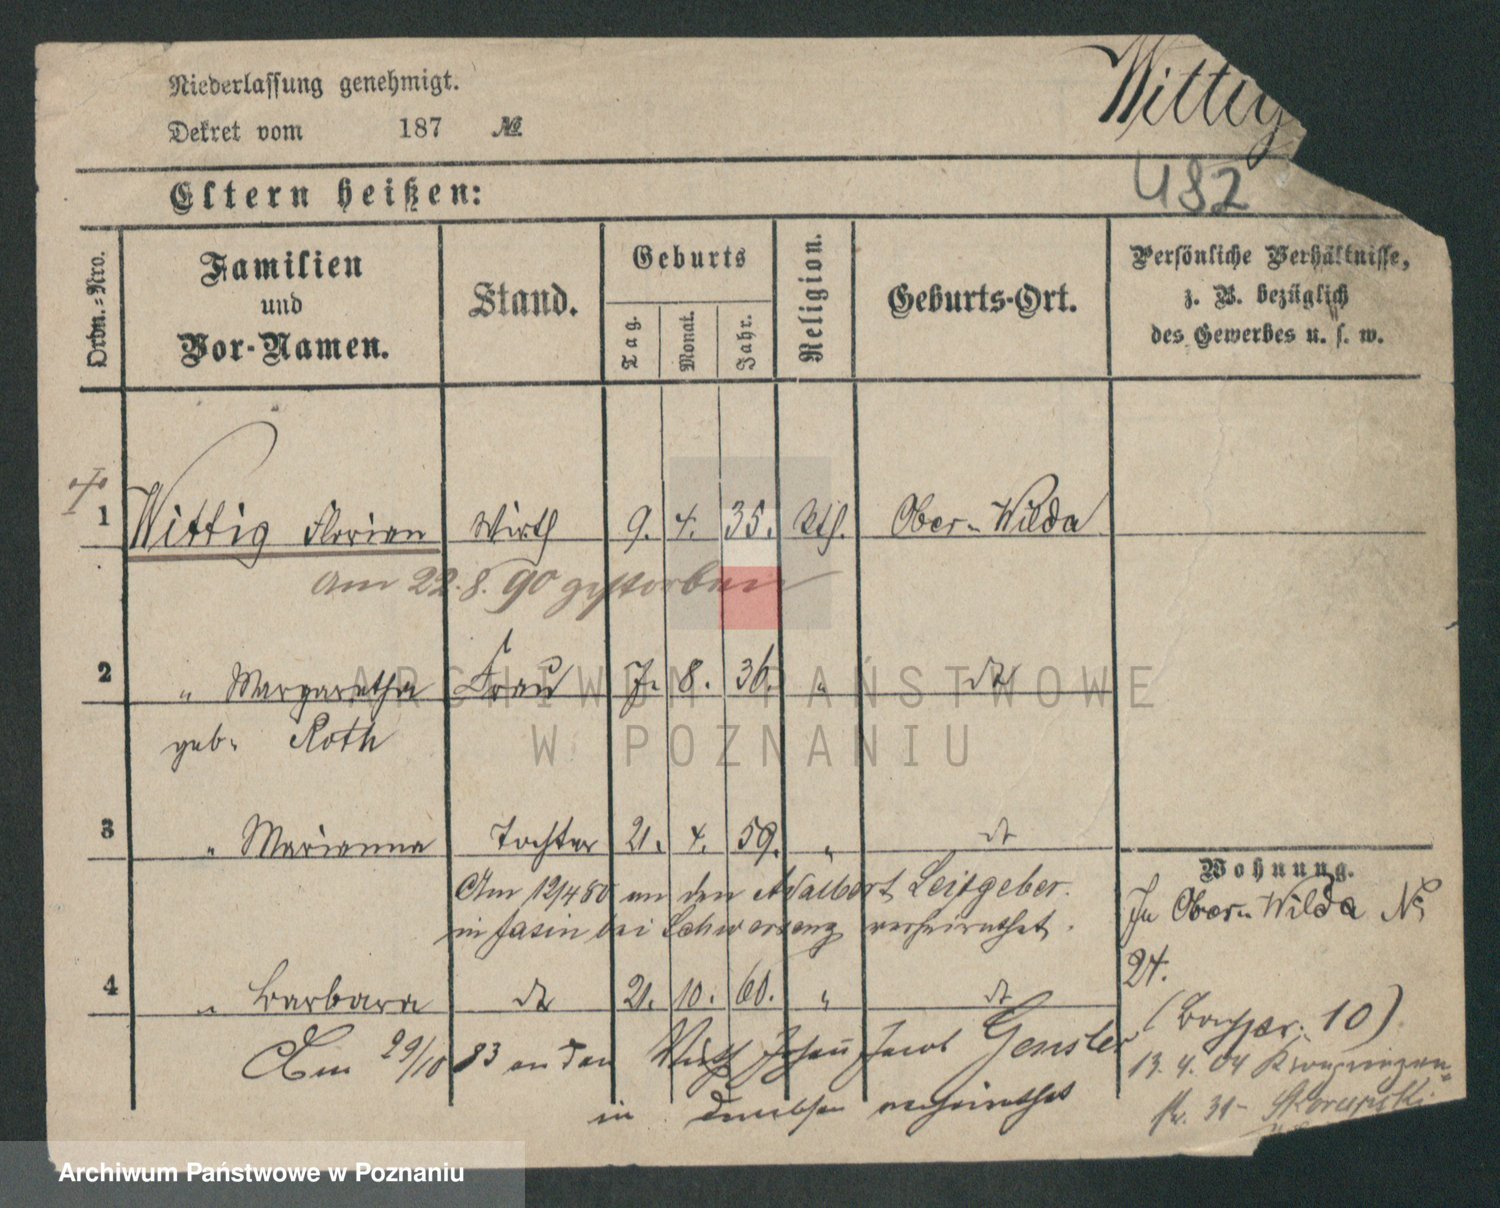 Niederlassung genehmigt.
Dekret vom 187 №
Wittig
482
Eltern heißen:
Ordn.-Nro.
Familien und Vor-Namen.
Stand.
Geburts
Tag.
Monat.
Jahr.
Religion.
Geburts-Ort.
Persönliche Verhältnisse,
z. B. bezüglich
des Gewerbes u. s. w.
1 Wittig Florian Wirth 9. 4. 35. kth. Ober-Wilda
am 22.8.90 gestorben
2 " Margaretha Frau 7. 8. 36. " dt
geb. Roth
3 " Marianna Tochter 21. 4. 59. " dt
Am 12/4 80 an den Adalbert Leitgeber
in Jasin bei Schwersenz verheirathet.
4 " Barbara dt 21. 10. 60. " dt
Am 29/10 83 an den Wirth Johann Jacob Gensler
in verheirathet
Wohnung.
In Ober-Wilda No
24.
10)
13. 4. 04
31- Skorupski
ARCHIWUM PAŃSTWOWE
W POZNANIU
Archiwum Państwowe w Poznaniu